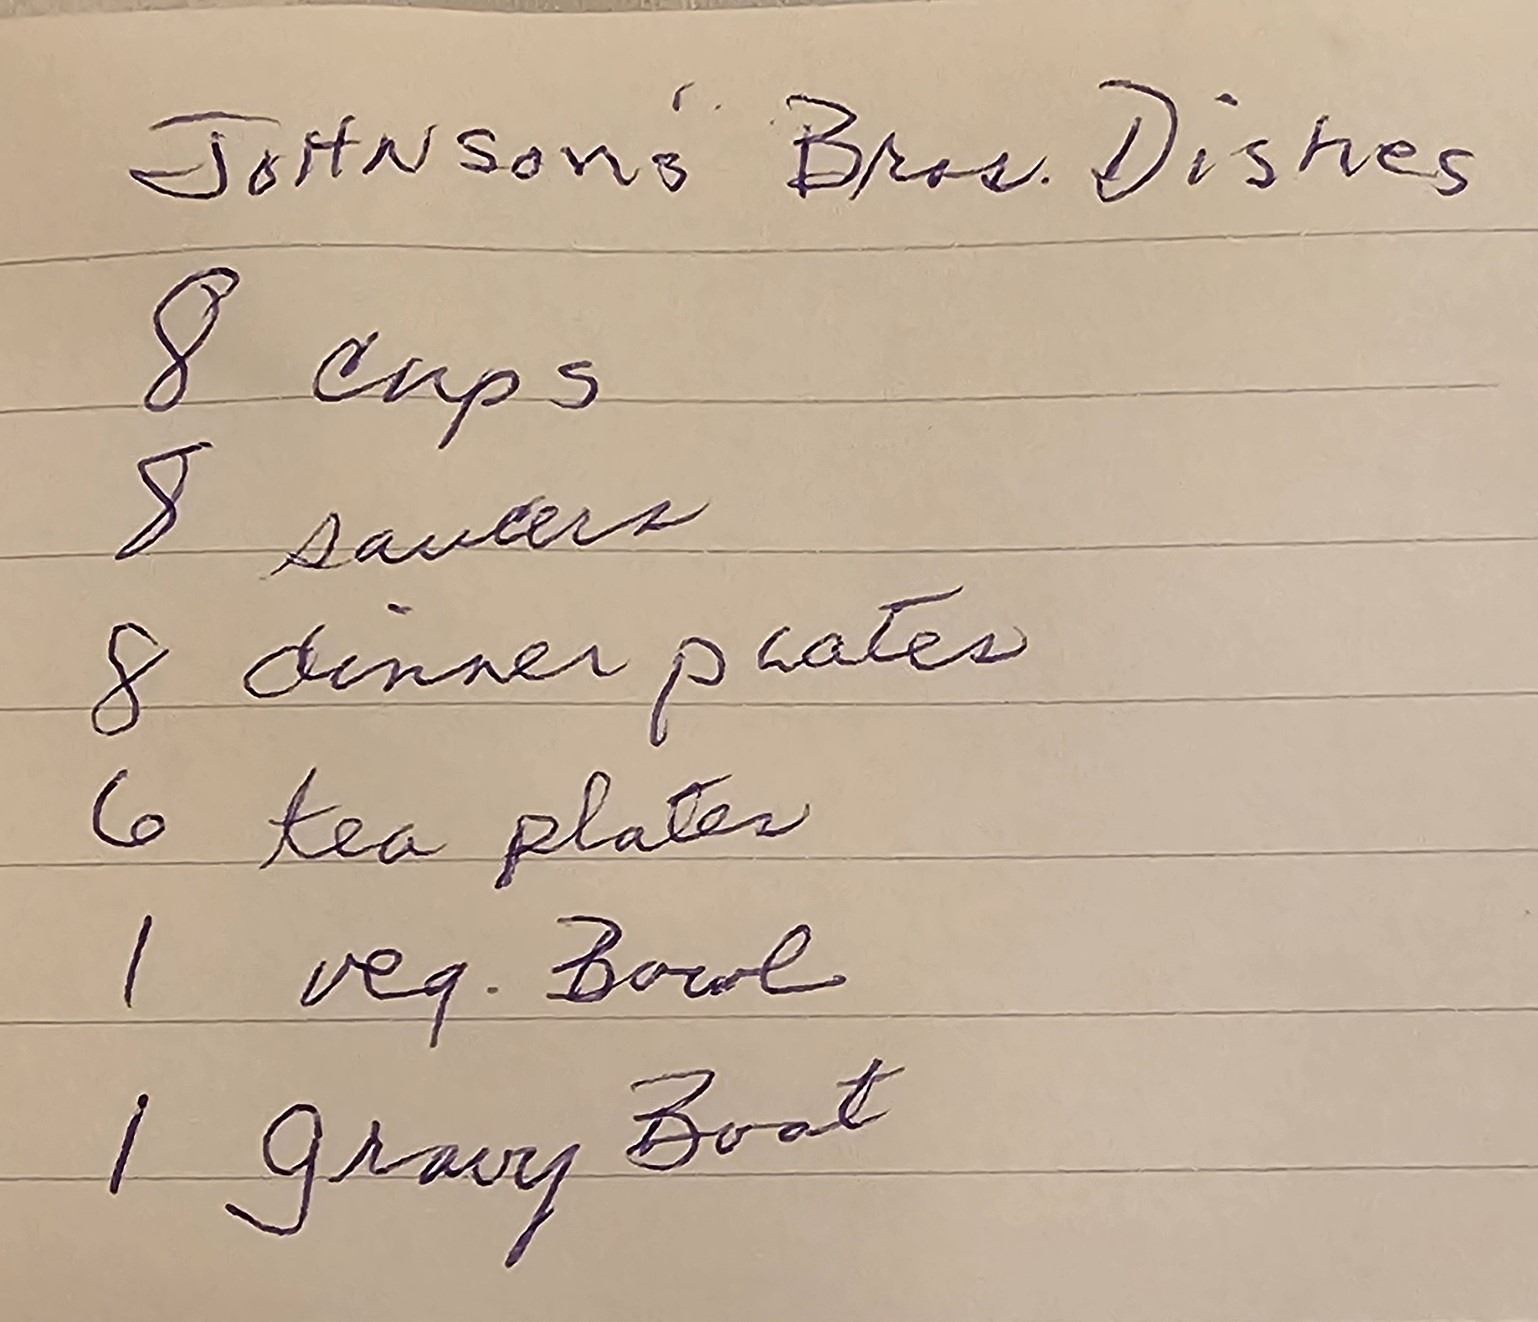 Johnson's Bros. Dishes
8 cups
8 saucers
8 dinner plates
6 tea plates
1 veg. Bowl
1 gravy Boat